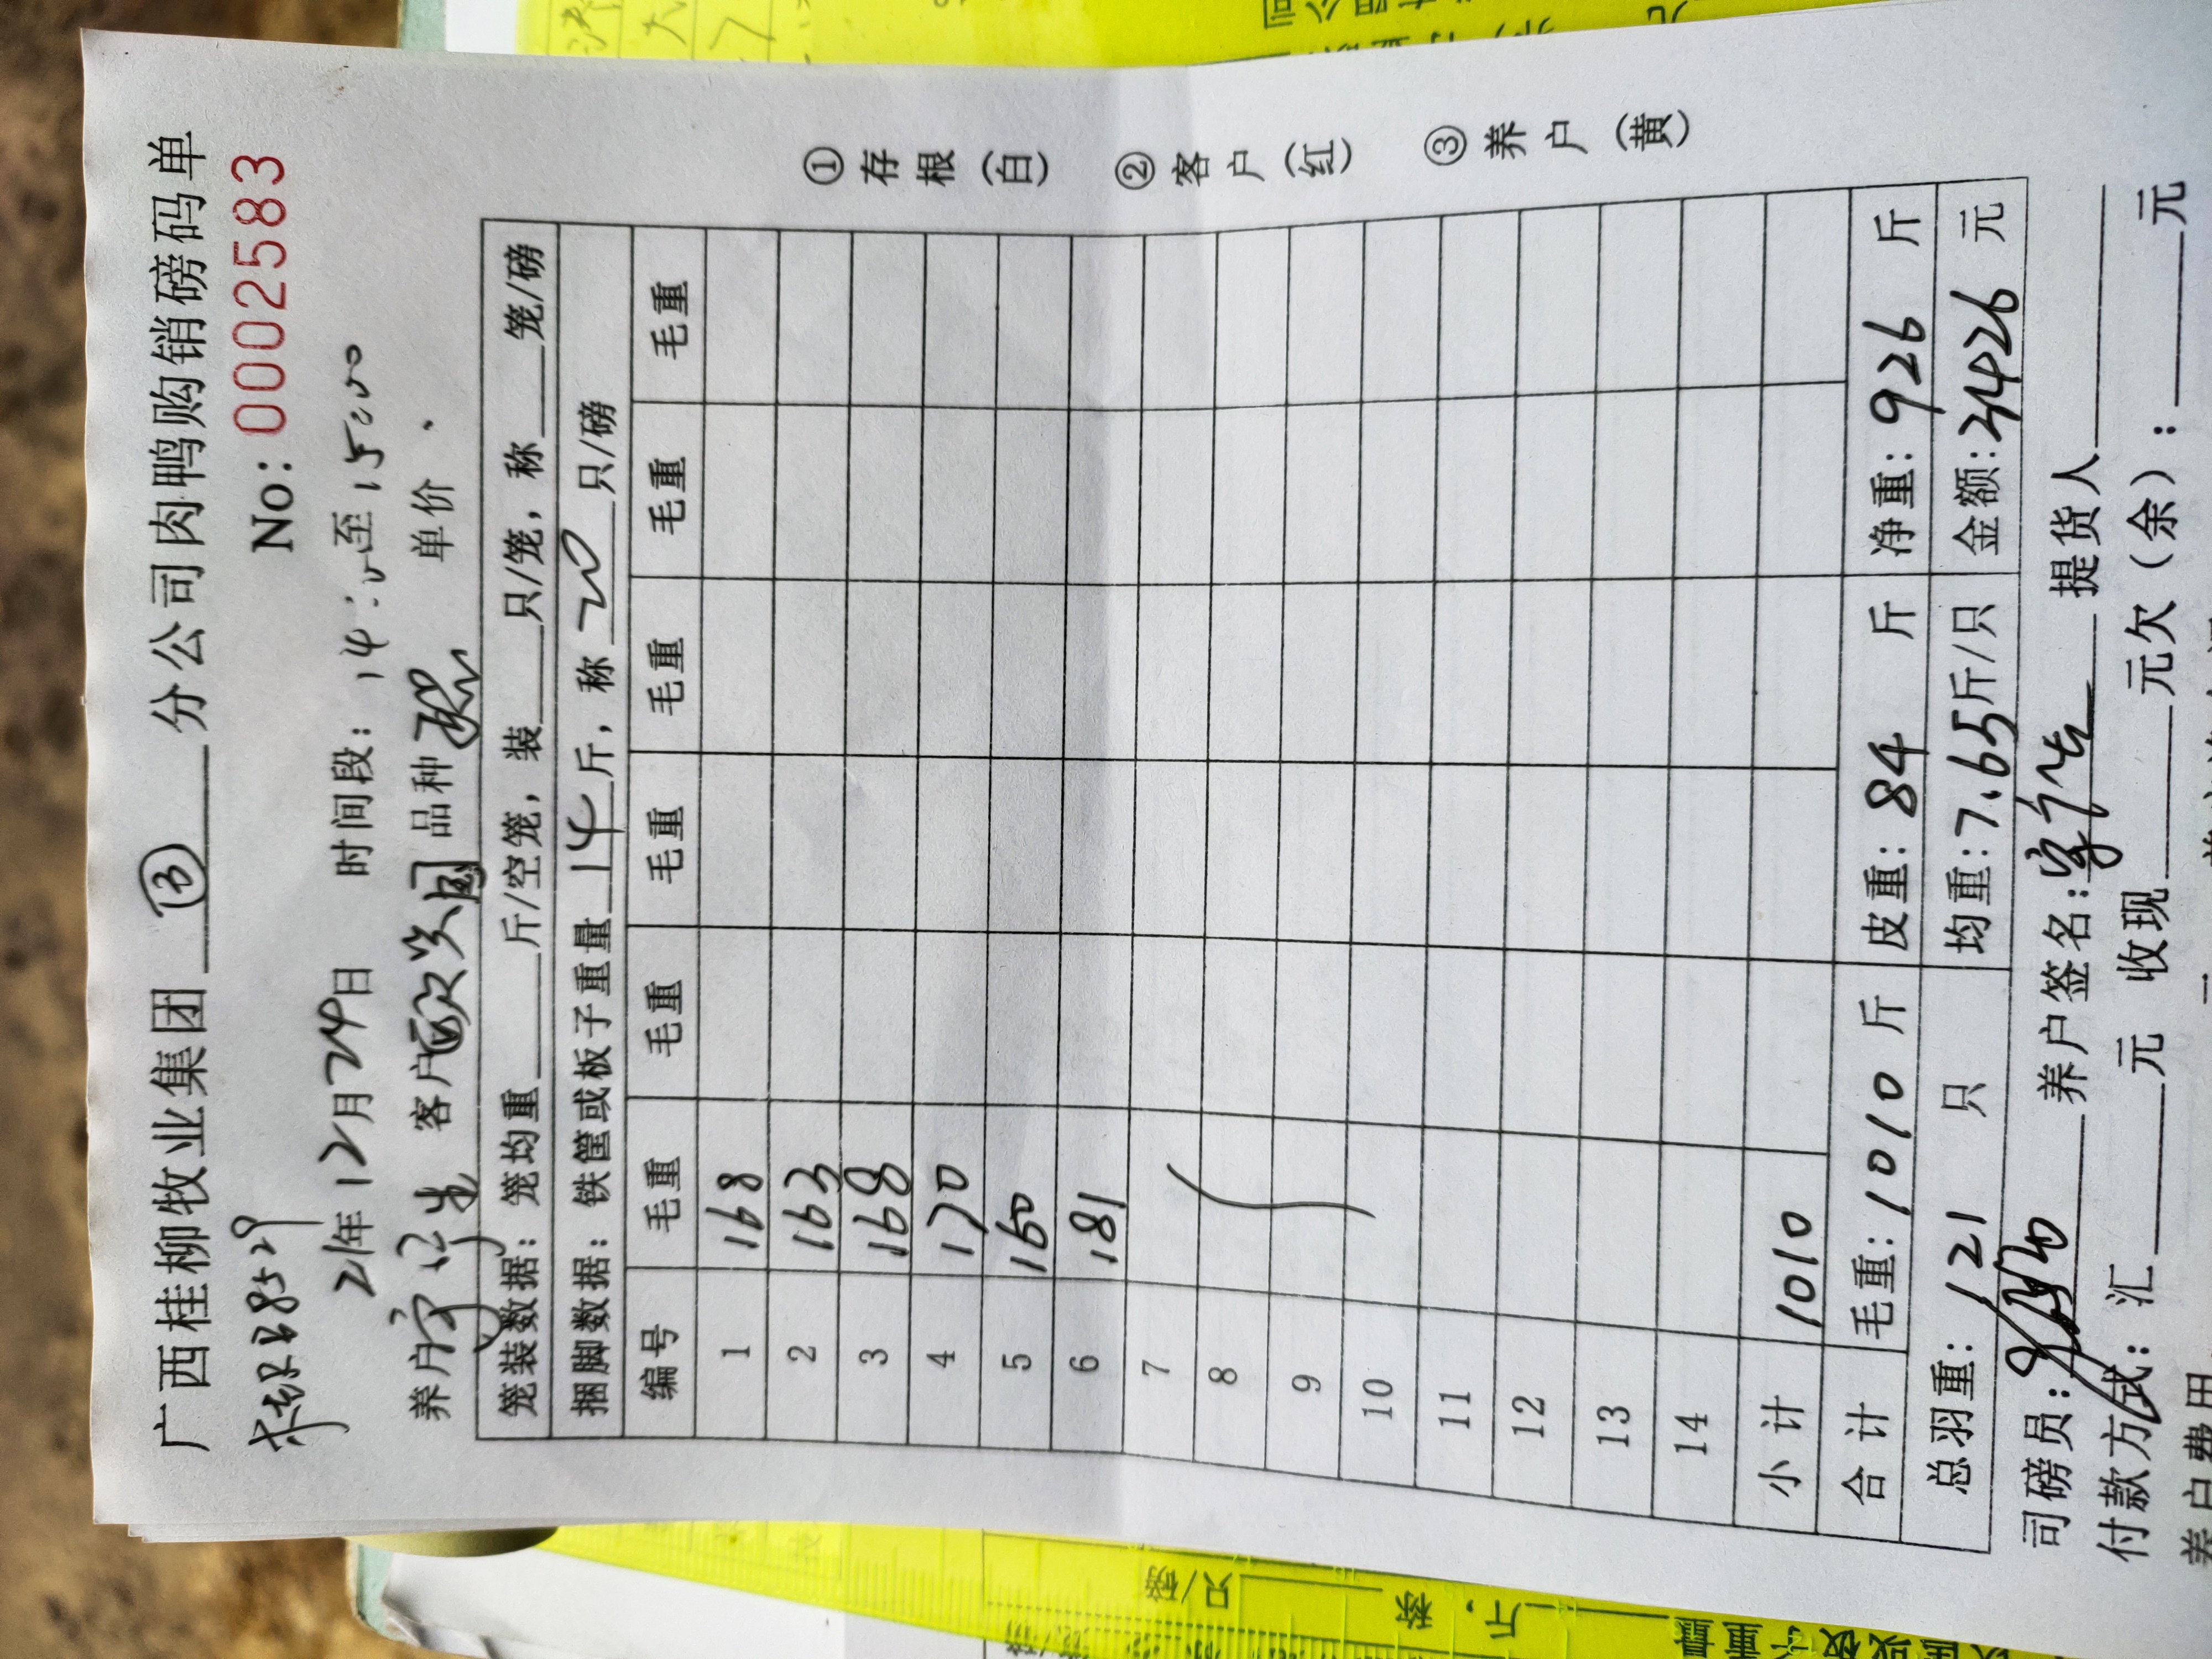 广西桂柳牧业集团 ⑬ 分公司肉鸭购销磅码单
8529
No: 0002583
21年12月24日 时间段: 14: 至15:00
养户 客户 欧 国 品种 单价
笼装数据: 笼均重 斤/空笼, 装 只/笼, 称 笼/磅
捆脚数据: 铁筐或板子重量 14 斤, 称 20 只/磅
编号 毛重 毛重 毛重 毛重 毛重 毛重
1 168
2 163
3 168
4 170
5 160
6 181
7
8
9
10
11
12
13
14
小计 1010
合计 毛重: 1010 斤 皮重: 84 斤 净重: 926 斤
总羽重: 121 只 均重: 7.65斤/只 金额: 3426 元
司磅员: 养户签名: 提货人
付款方式: 汇 元 收现 元欠(余): 元
养户费用
①存根(白) ②客户(红) ③养户(黄)
只/磅
斤, 称